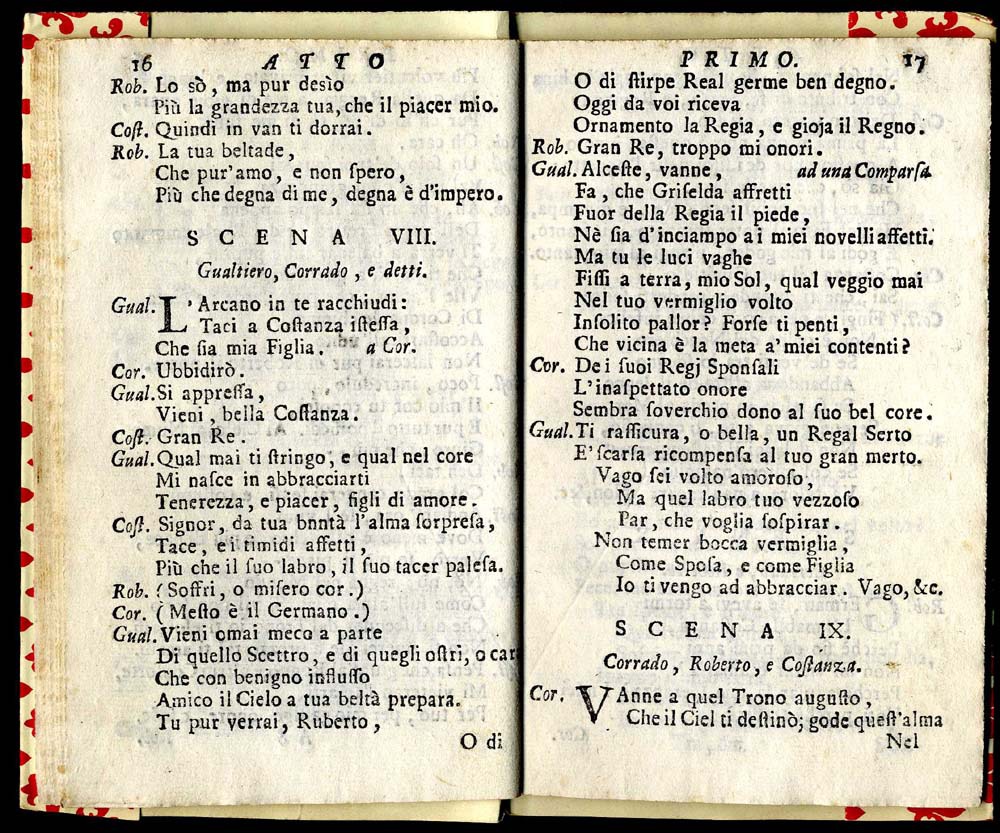 16 ATTO
Rob. Lo sò, ma pur desìo
Più la grandezza tua, che il piacer mio.
Coſt. Quindi in van ti dorrai.
Rob. La tua beltade,
Che pur'amo, e non ſpero,
Più che degna di me, degna è d'impero.
SCENA VIII.
Gualtiero, Corrado, e detti.
Gual. L'Arcano in te racchiudi:
Taci a Coſtanza iſteſſa,
Che ſia mia Figlia. a Cor.
Cor. Ubbidirò.
Gual. Si appreſſa,
Vieni, bella Coſtanza.
Coſt. Gran Re.
Gual. Qual mai ti ſtringo, e qual nel core
Mi naſce in abbracciarti
Tenerezza, e piacer, figli di amore.
Coſt. Signor, da tua bnntà l'alma ſorpreſa,
Tace, e i timidi affetti,
Più che il ſuo labro, il ſuo tacer paleſa.
Rob. (Soffri, o miſero cor.)
Cor. (Meſto è il Germano.)
Gual. Vieni omai meco a parte
Di quello Scettro, e di quegli oſtri, o car
Che con benigno influſſo
Amico il Cielo a tua beltà prepara.
Tu pur verrai, Ruberto,
O di
PRIMO. 17
O di ſtirpe Real germe ben degno.
Oggi da voi riceva
Ornamento la Regia, e gioja il Regno.
Rob. Gran Re, troppo mi onori.
Gual. Alceſte, vanne, ad una Comparſa
Fa, che Griſelda affretti
Fuor della Regia il piede,
Nè ſia d'inciampo a i miei novelli affetti.
Ma tu le luci vaghe
Fiſſi a terra, mio Sol, qual veggio mai
Nel tuo vermiglio volto
Inſolito pallor? Forſe ti penti,
Che vicina è la meta a' miei contenti?
Cor. De i ſuoi Regj Sponſali
L'inaſpettato onore
Sembra ſoverchio dono al ſuo bel core.
Gual. Ti raſſicura, o bella, un Regal Serto
E' ſcarſa ricompenſa al tuo gran merto.
Vago ſei volto amoroſo,
Ma quel labro tuo vezzoſo
Par, che voglia ſoſpirar.
Non temer bocca vermiglia,
Come Spoſa, e come Figlia
Io ti vengo ad abbracciar. Vago, &c.
SCENA IX.
Corrado, Roberto, e Coſtanza.
Cor. VAnne a quel Trono auguſto,
Che il Ciel ti deſtinò; gode queſt'alma
Nel